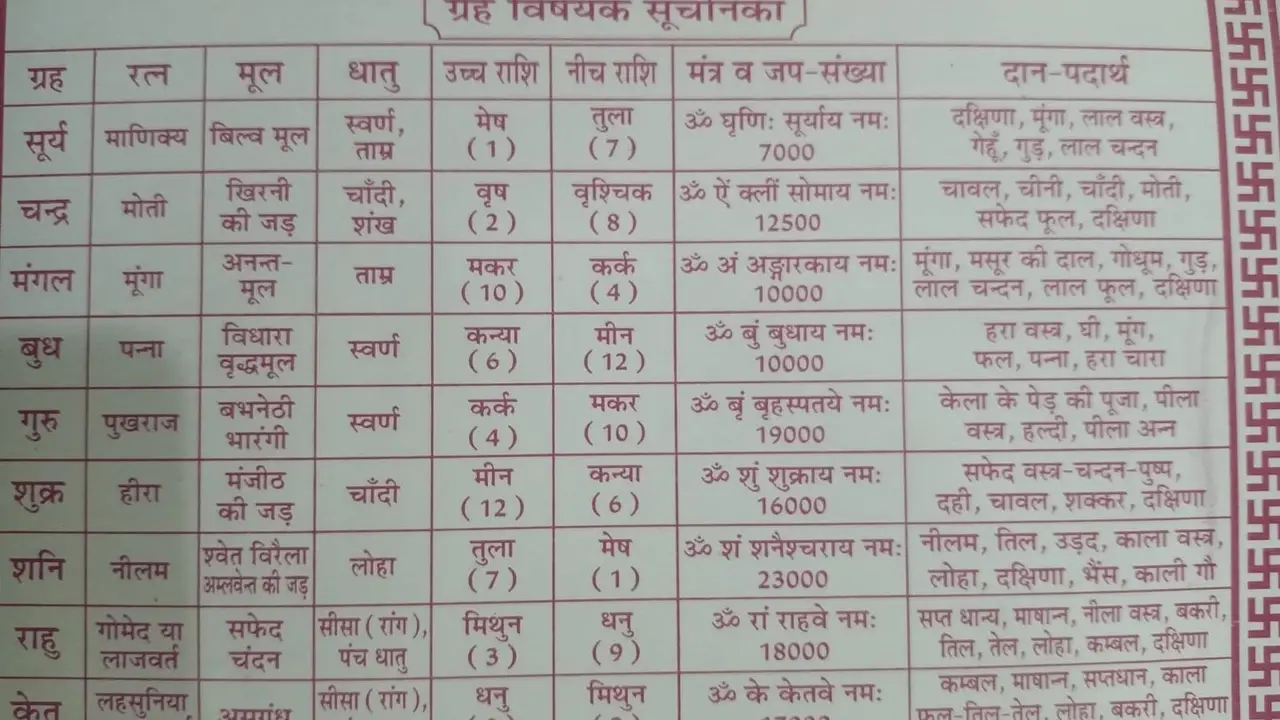 ग्रह विषयक सूचनिका
ग्रह रत्न मूल धातु उच्च राशि नीच राशि मंत्र व जप-संख्या दान-पदार्थ
सूर्य माणिक्य बिल्व मूल स्वर्ण, ताम्र मेष (1) तुला (7) ॐ घृणिः सूर्याय नमः 7000 दक्षिणा, मूंगा, लाल वस्त्र, गेहूँ, गुड़, लाल चन्दन
चन्द्र मोती खिरनी की जड़ चाँदी, शंख वृष (2) वृश्चिक (8) ॐ ऐं क्लीं सोमाय नमः 12500 चावल, चीनी, चाँदी, मोती, सफेद फूल, दक्षिणा
मंगल मूंगा अनन्त-मूल ताम्र मकर (10) कर्क (4) ॐ अं अङ्गारकाय नमः 10000 मूंगा, मसूर की दाल, गोधूम, गुड़, लाल चन्दन, लाल फूल, दक्षिणा
बुध पन्ना विधारा वृद्धमूल स्वर्ण कन्या (6) मीन (12) ॐ बुं बुधाय नमः 10000 हरा वस्त्र, घी, मूंग, फल, पन्ना, हरा चारा
गुरु पुखराज बभनेठी भारंगी स्वर्ण कर्क (4) मकर (10) ॐ बृं बृहस्पतये नमः 19000 केला के पेड़ की पूजा, पीला वस्त्र, हल्दी, पीला अन्न
शुक्र हीरा मंजीठ की जड़ चाँदी मीन (12) कन्या (6) ॐ शुं शुक्राय नमः 16000 सफेद वस्त्र-चन्दन-पुष्प, दही, चावल, शक्कर, दक्षिणा
शनि नीलम श्वेत विरैला अम्लवेन्त की जड़ लोहा तुला (7) मेष (1) ॐ शं शनैश्चराय नमः 23000 नीलम, तिल, उड़द, काला वस्त्र, लोहा, दक्षिणा, भैंस, काली गौ
राहु गोमेद या लाजवर्त सफेद चंदन सीसा (रांग), पंच धातु मिथुन (3) धनु (9) ॐ रां राहवे नमः 18000 सप्त धान्य, माषान्न, नीला वस्त्र, बकरी, तिल, तेल, लोहा, कम्बल, दक्षिणा
केतु लहसुनिया, सीसा (रांग), धनु मिथुन ॐ के केतवे नमः कम्बल, माषान्न, सप्तधान, काला फूल-तिल-तेल, लोहा, बकरी, दक्षिणा